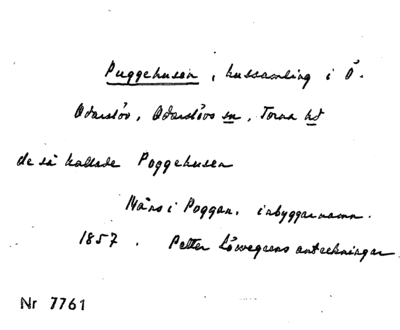 Puggehusen, hussamling i Ö.
Odarslöv, Odarslövs sn, Torna hd
de så kallade Poggehusen
Måns i Poggan, inbyggarnamn.
1857. Petter Löwegrens anteckningar
Nr 7761